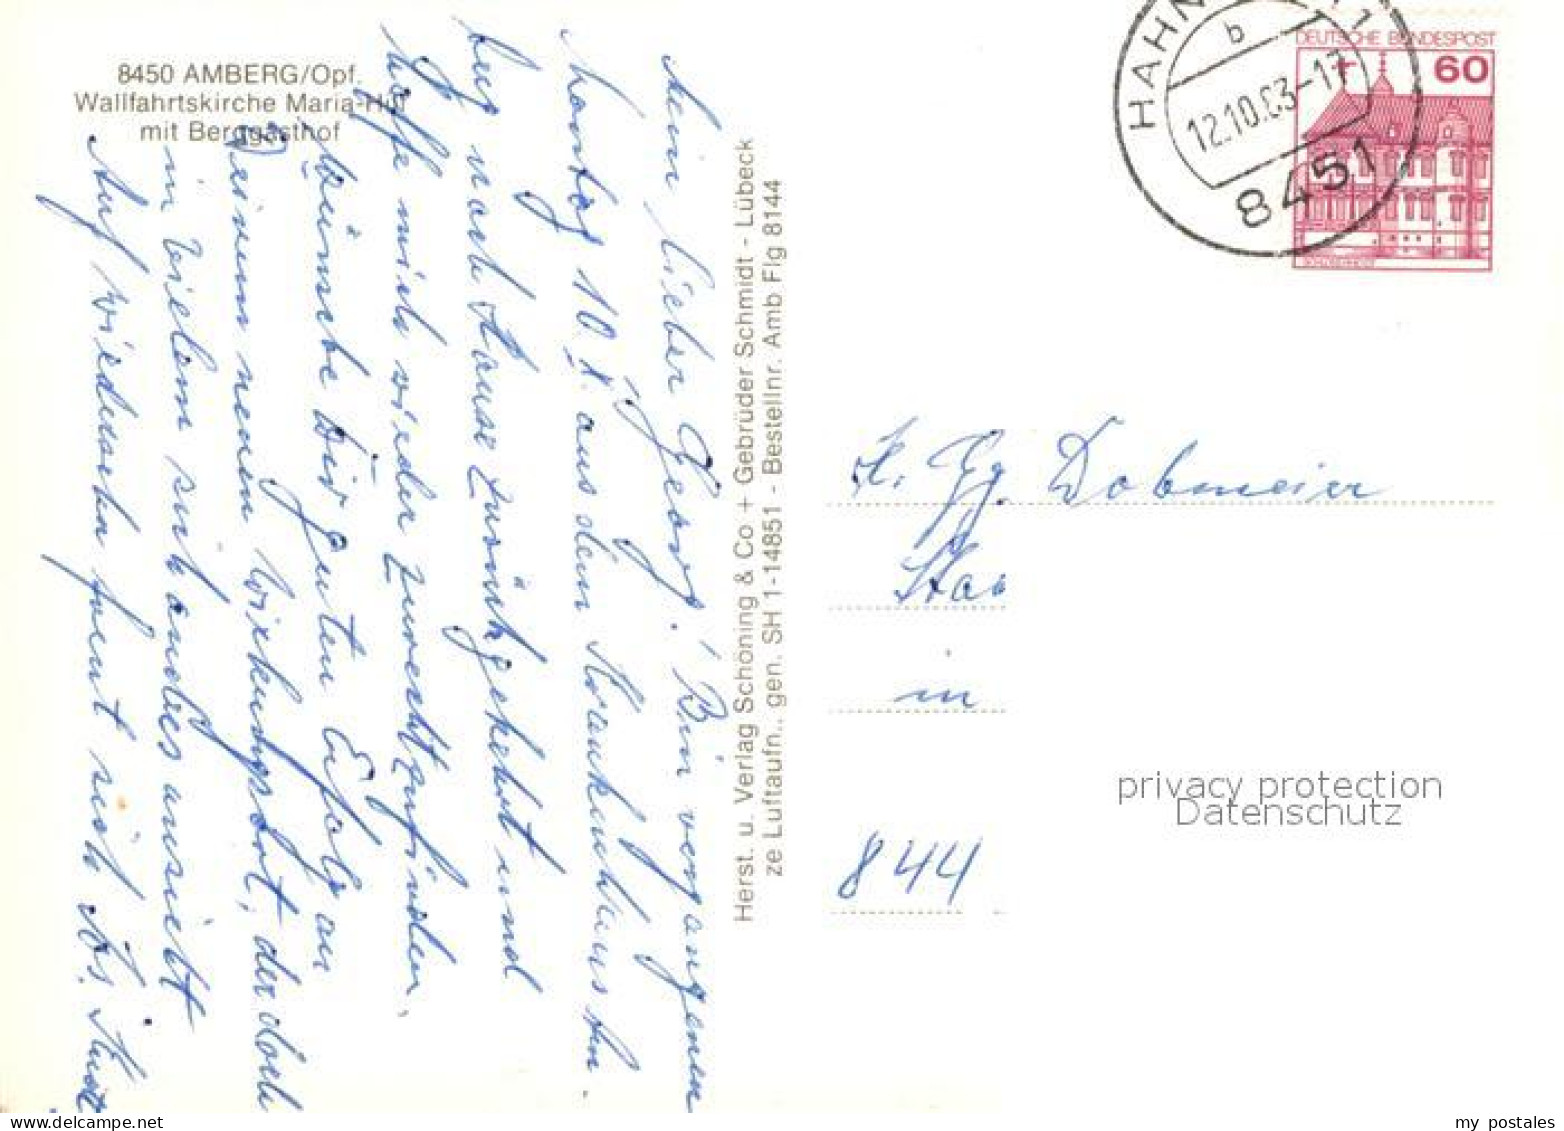 8450 AMBERG/Opf.
Wallfahrtskirche Maria-Hilf
mit Berggasthof
Mein lieber Georg! Bin vergangenen
Montag 10. X. aus dem Krankenhaus Am-
berg nach Hause zurückgekehrt und
hoffe mich wieder zurechtzufinden.
Wünsche Dir guten Erfolg an
Deinem neuen Wirkungsort, der doch
in vielem sich anders ansieht
Auf Wiedersehn freut sich
Herst. u. Verlag Schöning & Co + Gebrüder Schmidt - Lübeck
ze Luftaufn., gen. SH 1-14851 - Bestellnr. Amb Flg 8144
HAHN 1
b
12.10.83-17
8451
DEUTSCHE BUNDESPOST
60
H. Gg. Dobmeier
in
844
privacy protection
Datenschutz
my postales